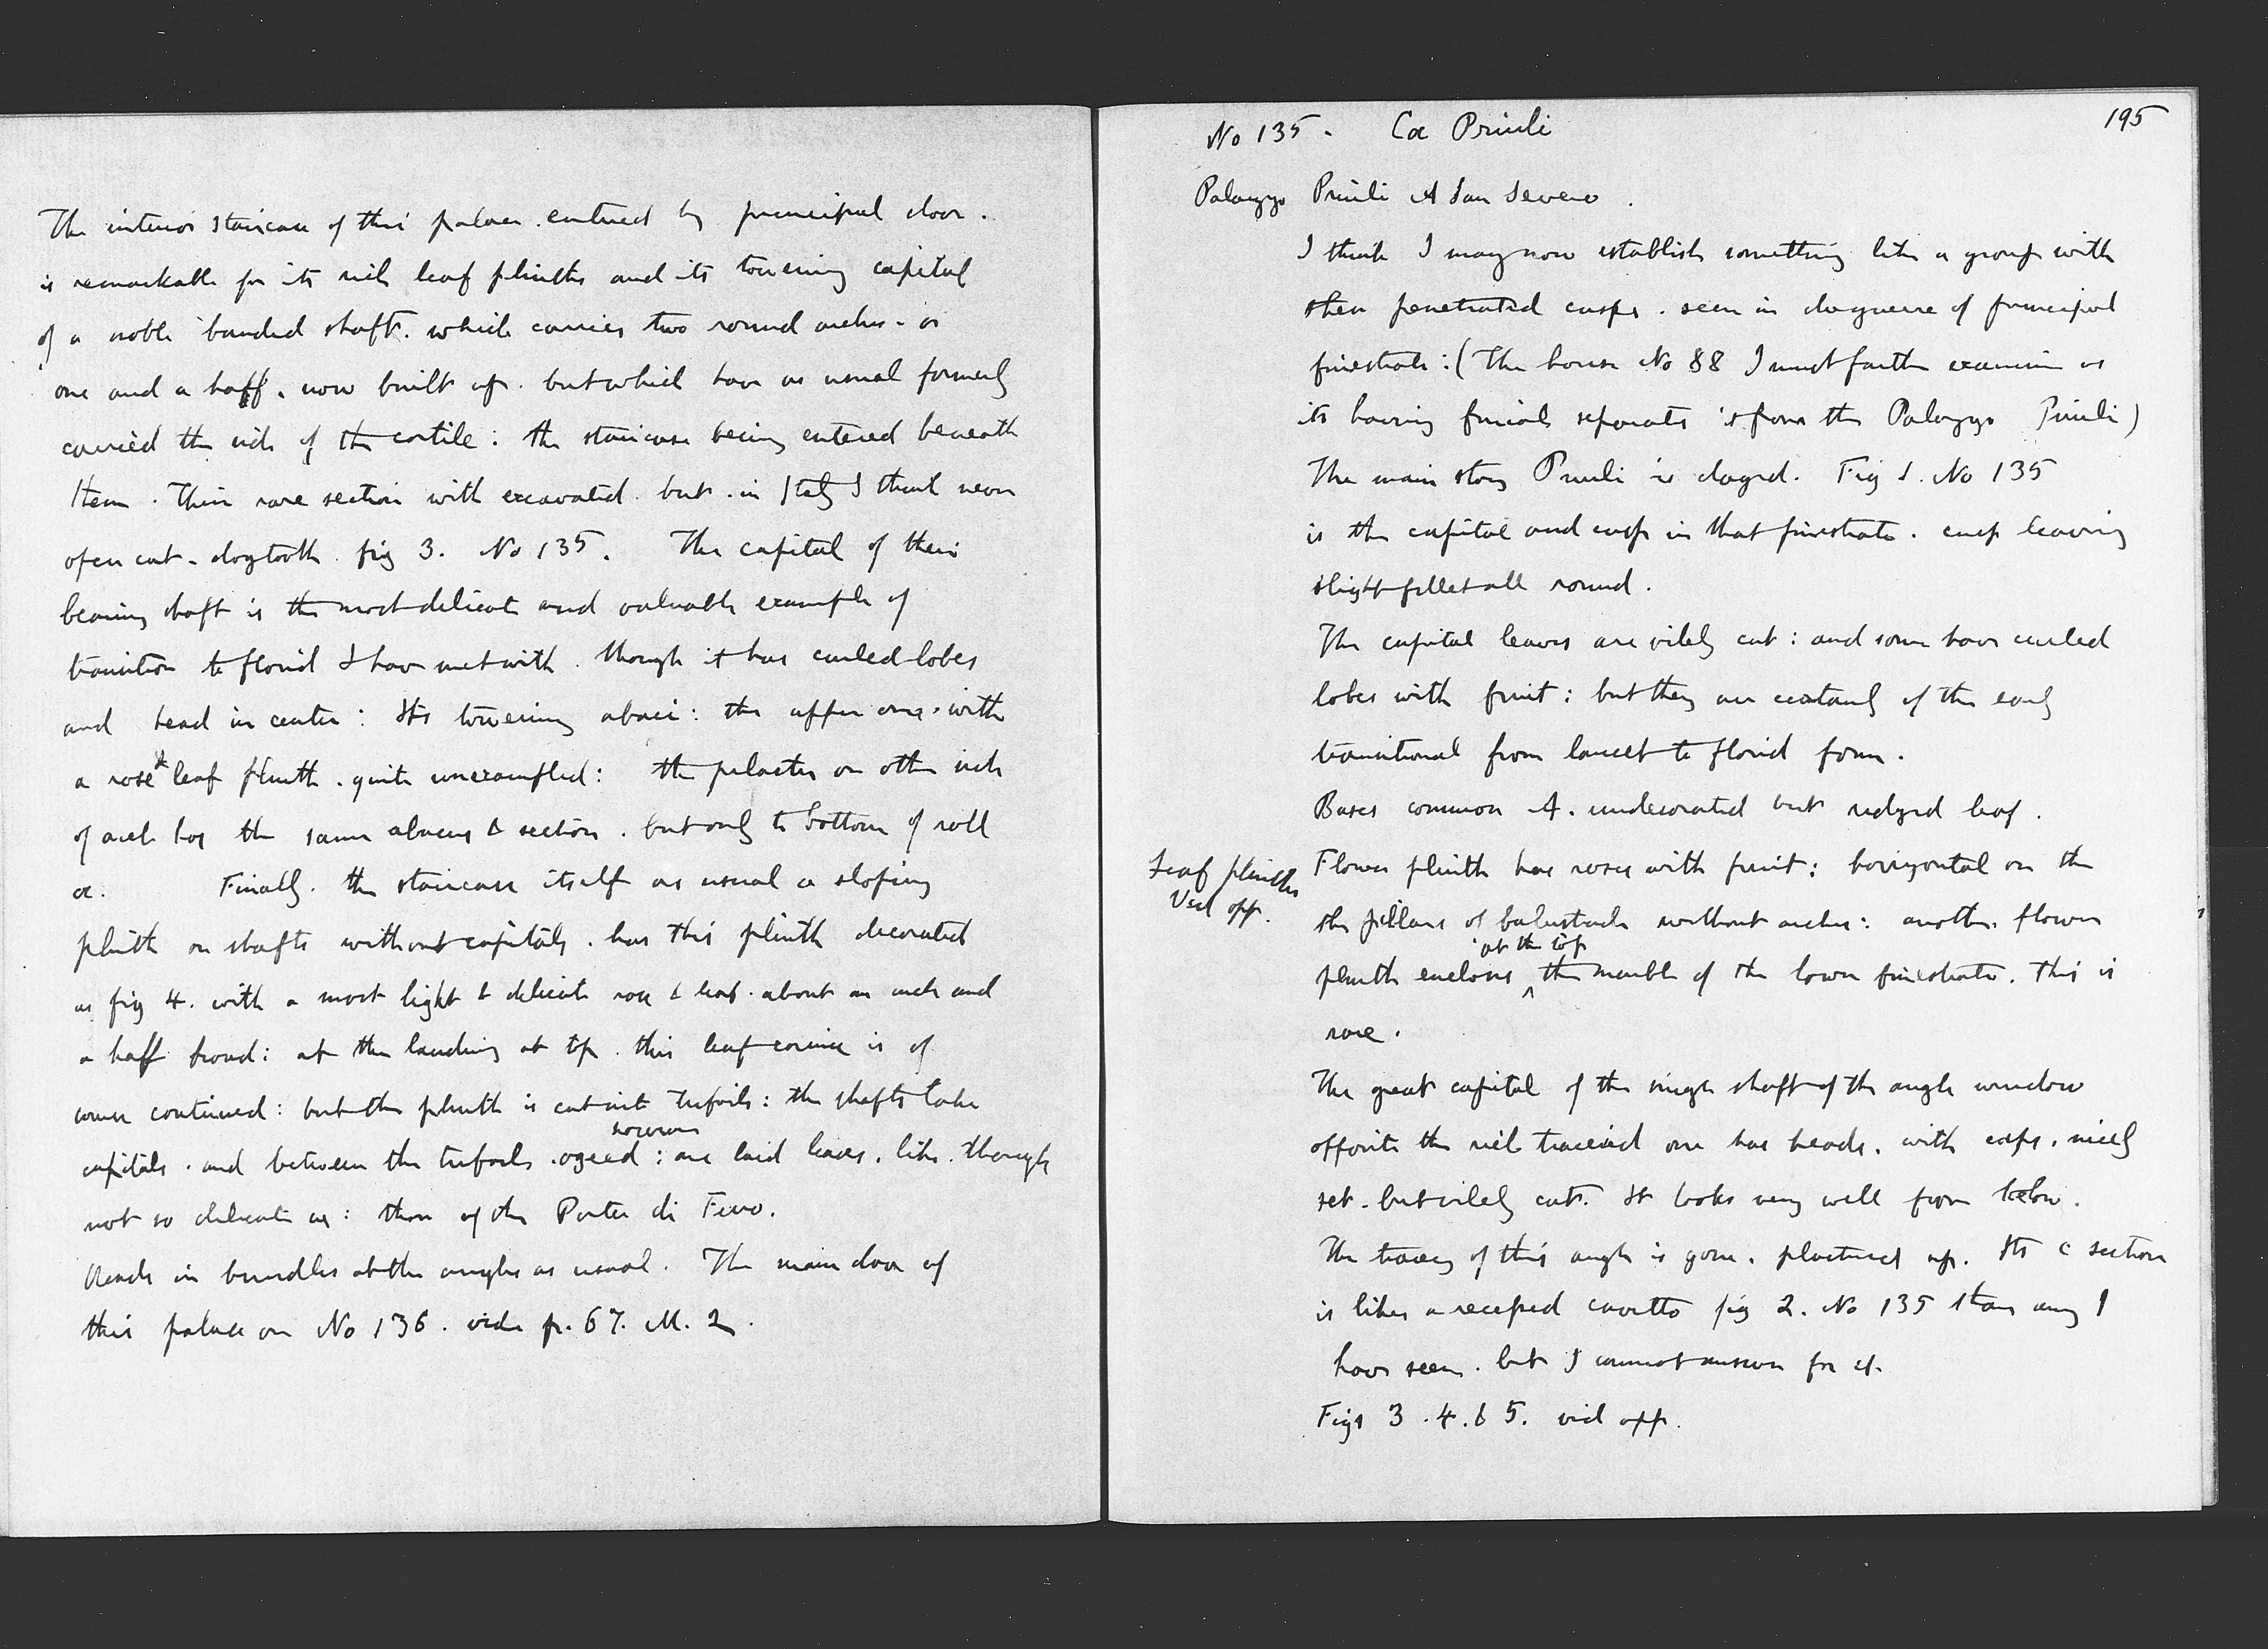 The interior staircase of this palace . entered by principal door .
is remarkable for its rich leaf plinths and its towering capital
of a noble banded shaft . which carries two round arches - or
one and a half . now built up . but which have as usual formerly
carried the side of the cortile : the staircase being entered beneath
them . Their rare section with excavated . but . in Italy I think never
open cut - dogtooth fig 3. No 135. The capital of their
bearing shaft is the most delicate and valuable example of
transition to florid I have met with . though it has curled lobes
and head in center : Its towering abaci : the upper one . with
a rose & leaf plinth . quite unexampled : the pilaster on other side
of arch has the same abacus & section . but only to bottom of roll
a. Finally . the staircase itself as usual a sloping
plinth on shafts without capitals . has this plinth decorated
as fig 4. with a most light & delicate rose & leaf . about an inch and
a half broad : at the landing at top . this leaf cornice is of
course continued : but the plinth is cut into trefoils : the shafts take
capitals . and between the trefoils . ogeed : are laid leaves . like . though
not so delicate as : those of the Porta di Ferro.
Heads in bundles at the angles as usual . The main door of
this palace on No 136 . vide p. 67. M. 2 .
195
No 135 . Ca Priuli
Palazzo Priuli at San Severo .
I think I may now establish something like a group with
their penetrated cusps . seen in daguerre of principal
finestrata : ( The house No 88 I must further examine as
its having finials separates it from the Palazzo Priuli )
The main story Priuli is dagd . Fig 1. No 135
is the capital and cusp in that finestrata . cusp leaving
slight fillet all round .
The capital leaves are vilely cut : and some have curled
lobes with fruit : but they are certainly of the early
transitional from lancet to florid form .
Bases common A. undecorated but ridged leaf .
Leaf plinths
Vid opp.
Flower plinth has roses with fruit : horizontal on the
the pillars of balustrade without arches : another flower
at the top
plinth encloses ^ the marble of the lower finestrata . This is
rare .
The great capital of the single shaft of the angle window
opposite the rich traceried one has heads . with caps . nicely
set . but vilely cut . It looks very well from below .
The tracery of this angle is gone . plastered up . Its c section
is liker a recessed cavetto fig 2. No 135 than any I
have seen . but I cannot answer for it .
Figs 3 . 4 . & 5 . vid opp .